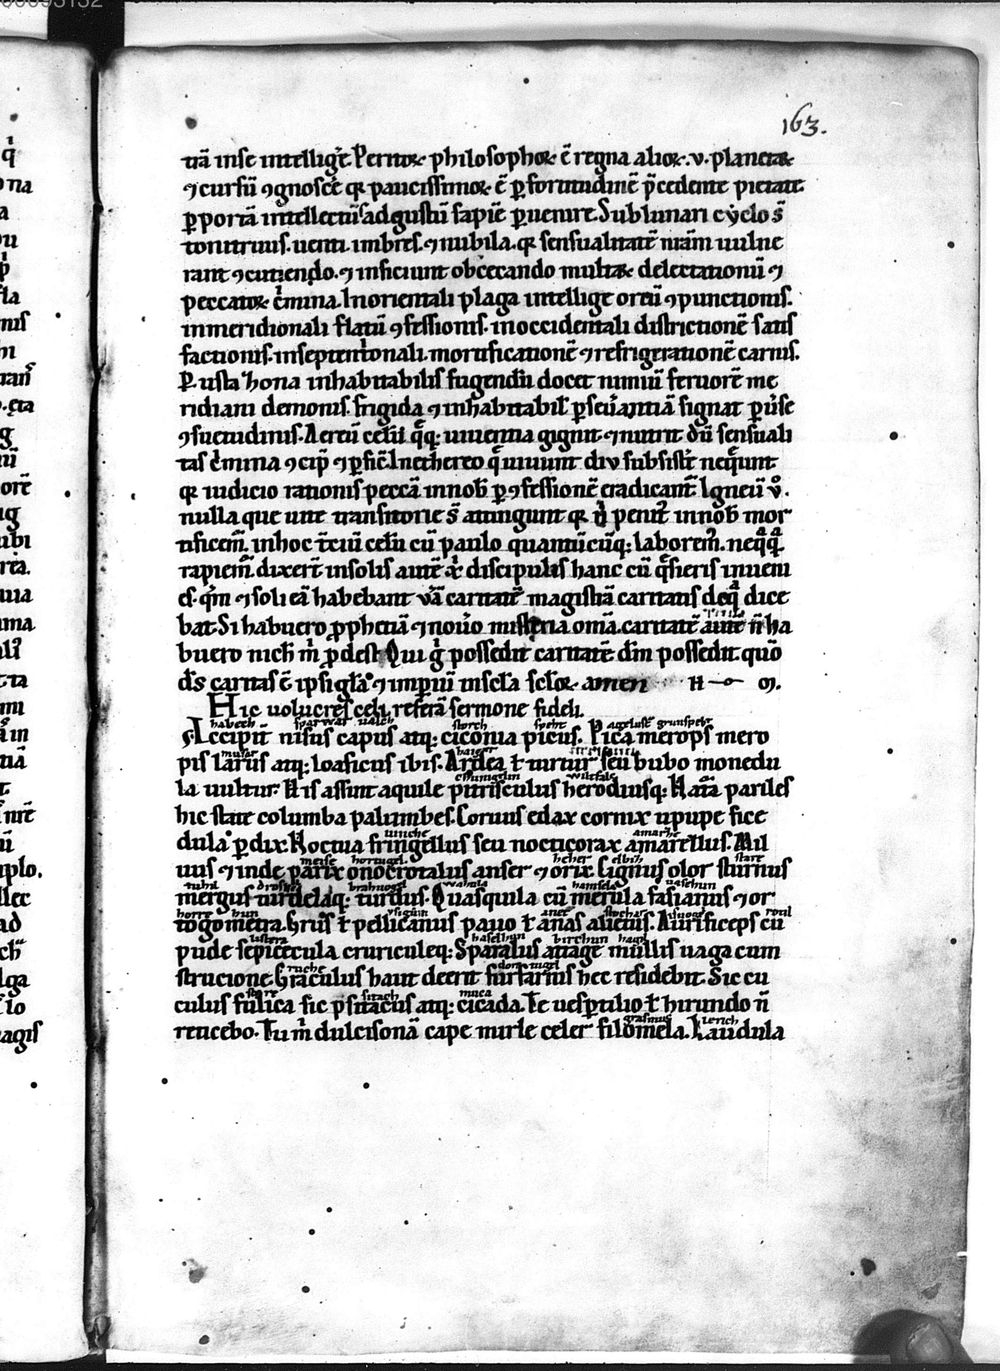 163.
tiã inse intellig̃e Peritoꝝ philosophoꝝ ẽ regna alioꝝ .v. planetaꝝ
⁊ cursũ ꝯgnoscẽ qꝫ paucissimoꝝ ẽ ꝑ fortitudinẽ p̃cedente pietate
ꝑ portã intellectũ ad gustũ sapiẽ ꝑuenire. Sublunari cyclo s̃
tonitruis. uenti. imbres. ⁊ nubila. qꝫ sensualitatẽ nr̃am uulne
rant ꝯcutiendo. ⁊ inficiunt obcecando multaꝝ delectationũ ⁊
peccatoꝝ c̃mina. In orientali plaga intellige ortũ ꝯpunctionis.
in meridionali flatũ ꝯfessionis. in occidentali districtionẽ satis
factionis. in septent̃onali. mortificationẽ ⁊ refrigerationẽ carnis.
Ꝑ usta zona inhabitabilis fugiendũ docet nimiũ feruorẽ me
ridiani demonis. frigida ⁊ inhabitabil̃ ꝑseũantiã signat ꝑũse
ꝯsuetudinis. Aereũ celũ q̃qꝫ uiuentia gignit ⁊ nutrit dũ sensuali
tas c̃imina ꝯcip̃ ⁊ ꝑfic̃. In ethereo q̃ uiuunt diu subsist̃e neq̃unt
qꝫ iudicio rationis peccã in nob̃ ꝑ ꝯfessionẽ eradicant̃. Igneũ ṽ.
nulla que uite transitorie s̃ attingunt qꝫ penit̃ in nob̃ mor
tificem̃. in hoc t̃ciũ celũ cũ paulo quantũcũqꝫ laborem̃. neq̃q̃
rapiem̃ dixer̃t in solis autẽ discipulis hanc cũ q̃sieris inueni
es. q̃m ⁊ soli eã habebant vã caritatẽ magistrã caritatis de q̃ dice
bat. Si habuero ꝓphetiã ⁊ nouo misteria om̃a. caritatẽ autẽ ñ ha
buero nich̃ m̃ ꝓdest. Qui g̃ possedit caritatẽ dm̃ possedit. quõ
d̃s caritas ẽ ipsi gl̃a ⁊ imperiũ in sc̃la sc̃loꝝ. amen
Hic uolucres celi refer̃a sermone fideli.
habech sparwar ualch storch speht agelastẽ grunspeht
Accipit̃ nisus capus atqꝫ ciconia picus. Pica merops mero
musar haiger
pis larus atqꝫ loaficus ibis. Ardea t̃ turtur seu bubo monedu
la uultur. His assunt aquile pitrisculus herodiusqꝫ Natã pariles
hic state columba palumbes. Coruus edax cornix upupe fice
uinche amarhẽ
dula ꝑdix. Noctua fringellus seu nocticorax amarellus. Mil
meise hortugel heher elbiz stare
uus ⁊ inde parix onocrotalus anser ⁊ orix. Liginus olor sturnus
drosgel brahuogel wahtila hamsela uashun
mergus turdelaqꝫ turdus. Quasquila cũ merula fasianus ⁊ or
togometra. Grus t̃ pellicanus pauo t̃ anas alietus. Aurificeps cũ
haselhun birchun
pude sepicecula cruriculeqꝫ Sparalus attage mullis uaga cum
ruche
strucione. Graculus haut deerit furfarius hec residebit. Sic cu
sitich muca
culus fulica sic psitacus atqꝫ cicada. Te uesꝑtilio t̃ hirundo ñ
grasmus lerich
reticebo. Tu m̃ dulcisonã cape mirle celer filomela. Laudula